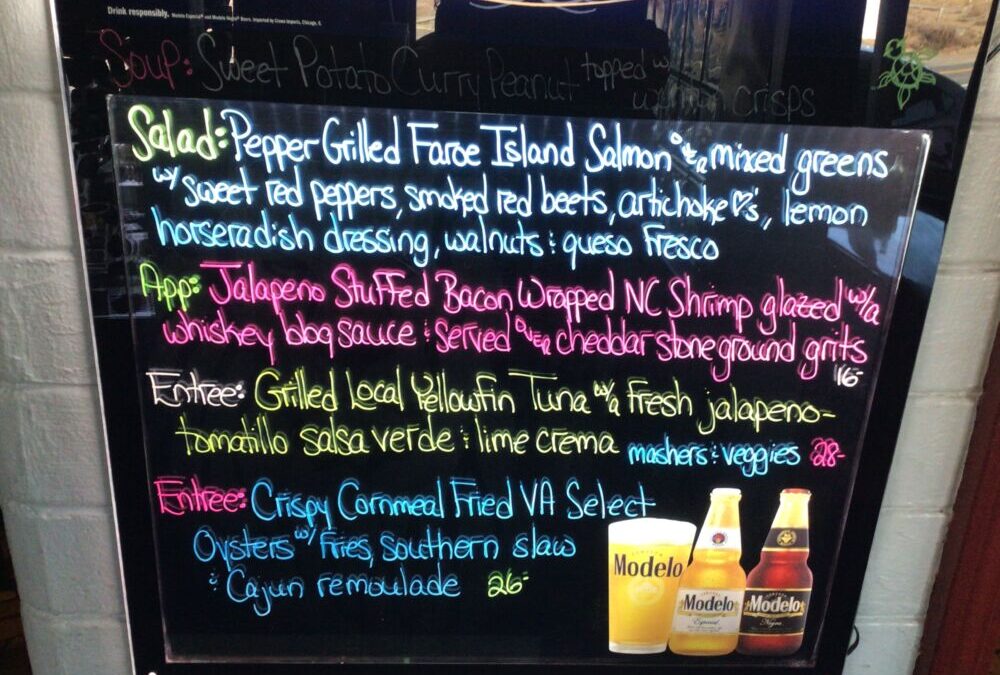 Drink responsibly. Modelo Especial® and Modelo Negra® Beers. Imported by Crown Imports, Chicago, IL
Soup: Sweet Potato Curry Peanut topped w/
crisps
Salad: Pepper Grilled Faroe Island Salmon over mixed greens
w/ sweet red peppers, smoked red beets, artichoke ♡'s, lemon
horseradish dressing, walnuts & queso fresco
App: Jalapeno Stuffed Bacon Wrapped NC Shrimp glazed w/a
whiskey bbq sauce & served over cheddar stoneground grits
16-
Entree: Grilled Local Yellowfin Tuna w/a fresh jalapeno-
tomatillo salsa verde & lime crema mashers & veggies 28-
Entree: Crispy Cornmeal Fried VA Select
Oysters w/ fries, southern slaw
& Cajun remoulade 26-
Modelo
Modelo
Especial
Modelo
Negra